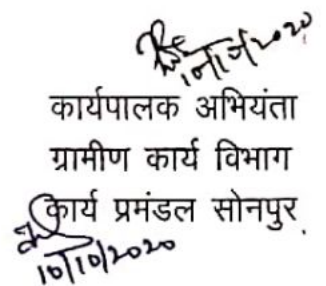 कार्यपालक अभियंता
ग्रामीण कार्य विभाग
कार्य प्रमंडल सोनपुर
10/10/2020